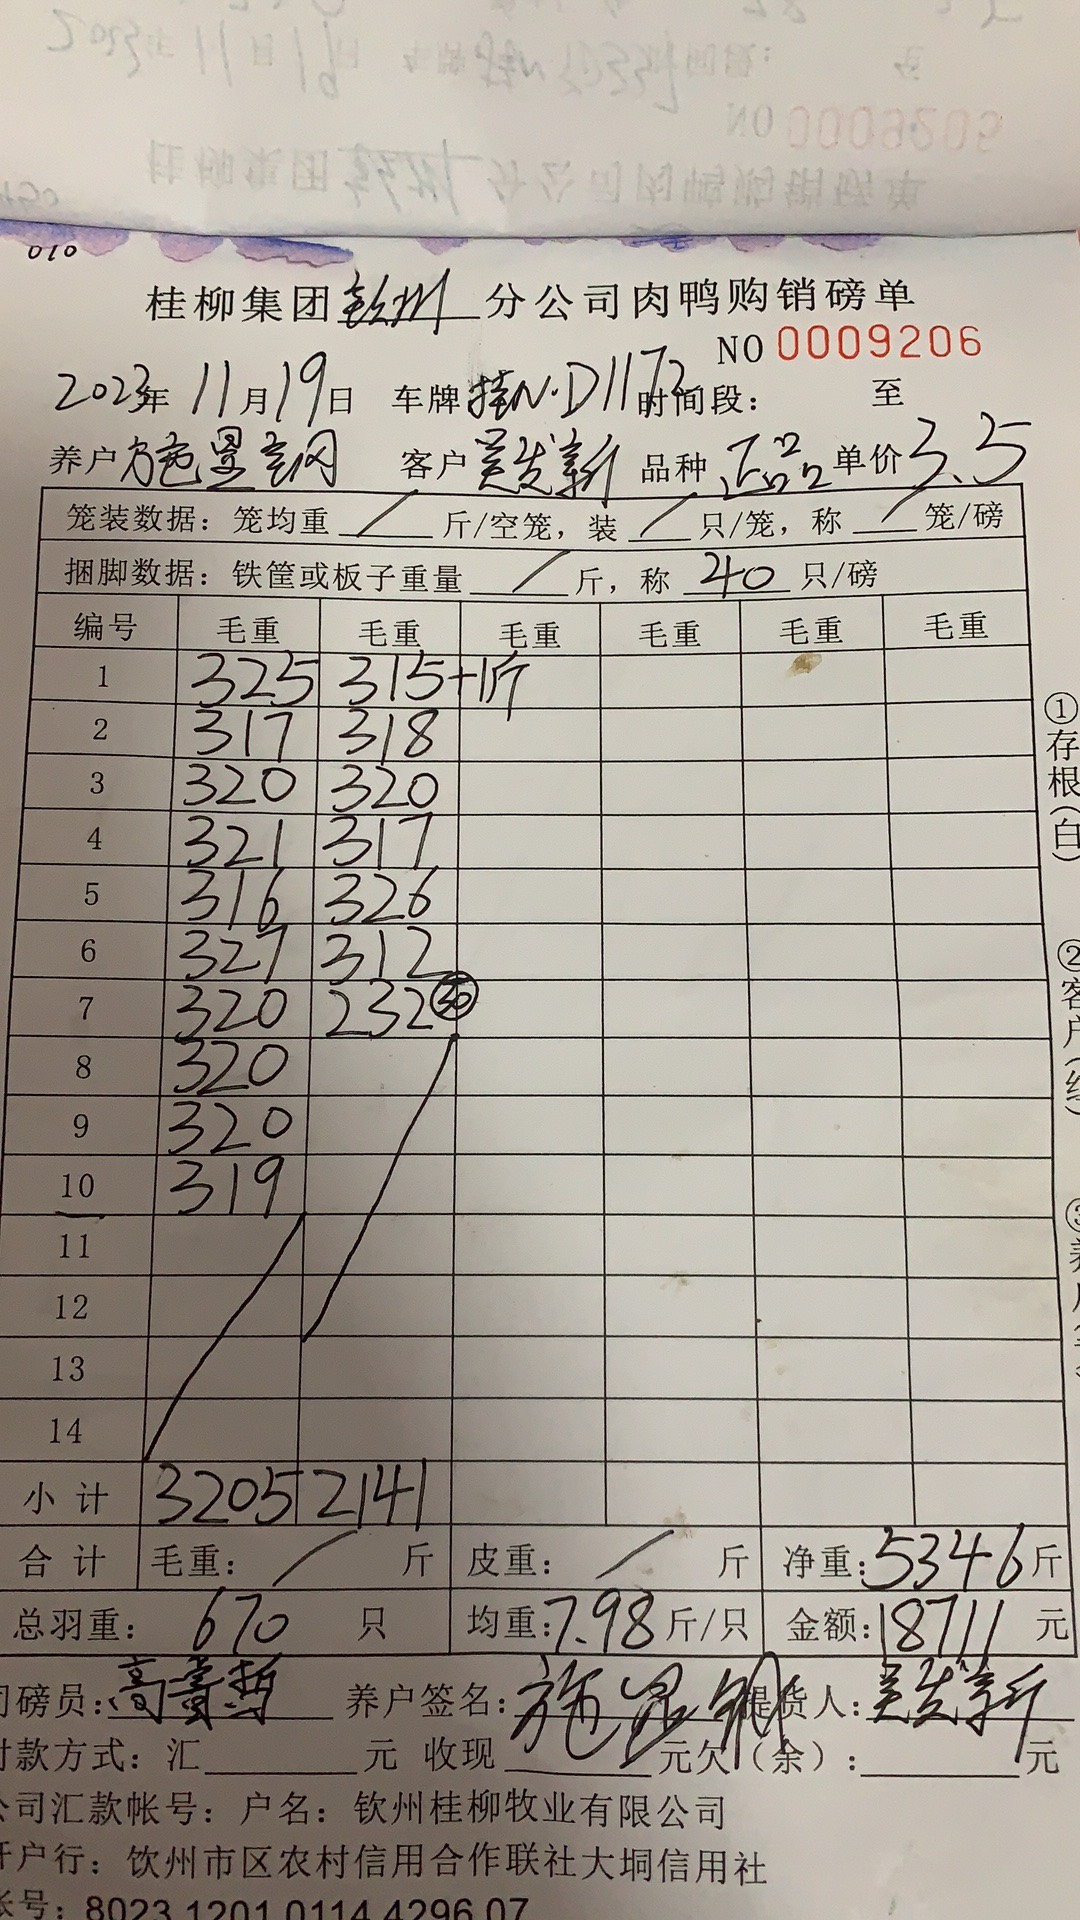 010
桂柳集团钦州分公司肉鸭购销磅单
NO 0009206
2023年 11月19日 车牌桂N·D1173 时间段: 至
养户 施昱钢 客户 吴发新 品种 正品 单价 3.5
笼装数据: 笼均重 / 斤/空笼, 装 / 只/笼, 称 / 笼/磅
捆脚数据: 铁筐或板子重量 / 斤, 称 40 只/磅
编号 毛重 毛重 毛重 毛重 毛重 毛重
1 325 315+1斤
2 317 318
3 320 320
4 321 317
5 316 326
6 327 312
7 320 232 ㉚
8 320
9 320
10 319
11
12
13
14
小计 3205 2141
合计 毛重: / 斤 皮重: / 斤 净重: 5346斤
总羽重: 670 只 均重: 7.98斤/只 金额: 18711 元
司磅员: 高 养户签名: 施昱钢 提货人: 吴发新
付款方式: 汇 元 收现 元欠(余): 元
公司汇款帐号: 户名: 钦州桂柳牧业有限公司
开户行: 钦州市区农村信用合作联社大垌信用社
帐号: 8023 1201 0114 4296 07
①存根(白)
②客户(红)